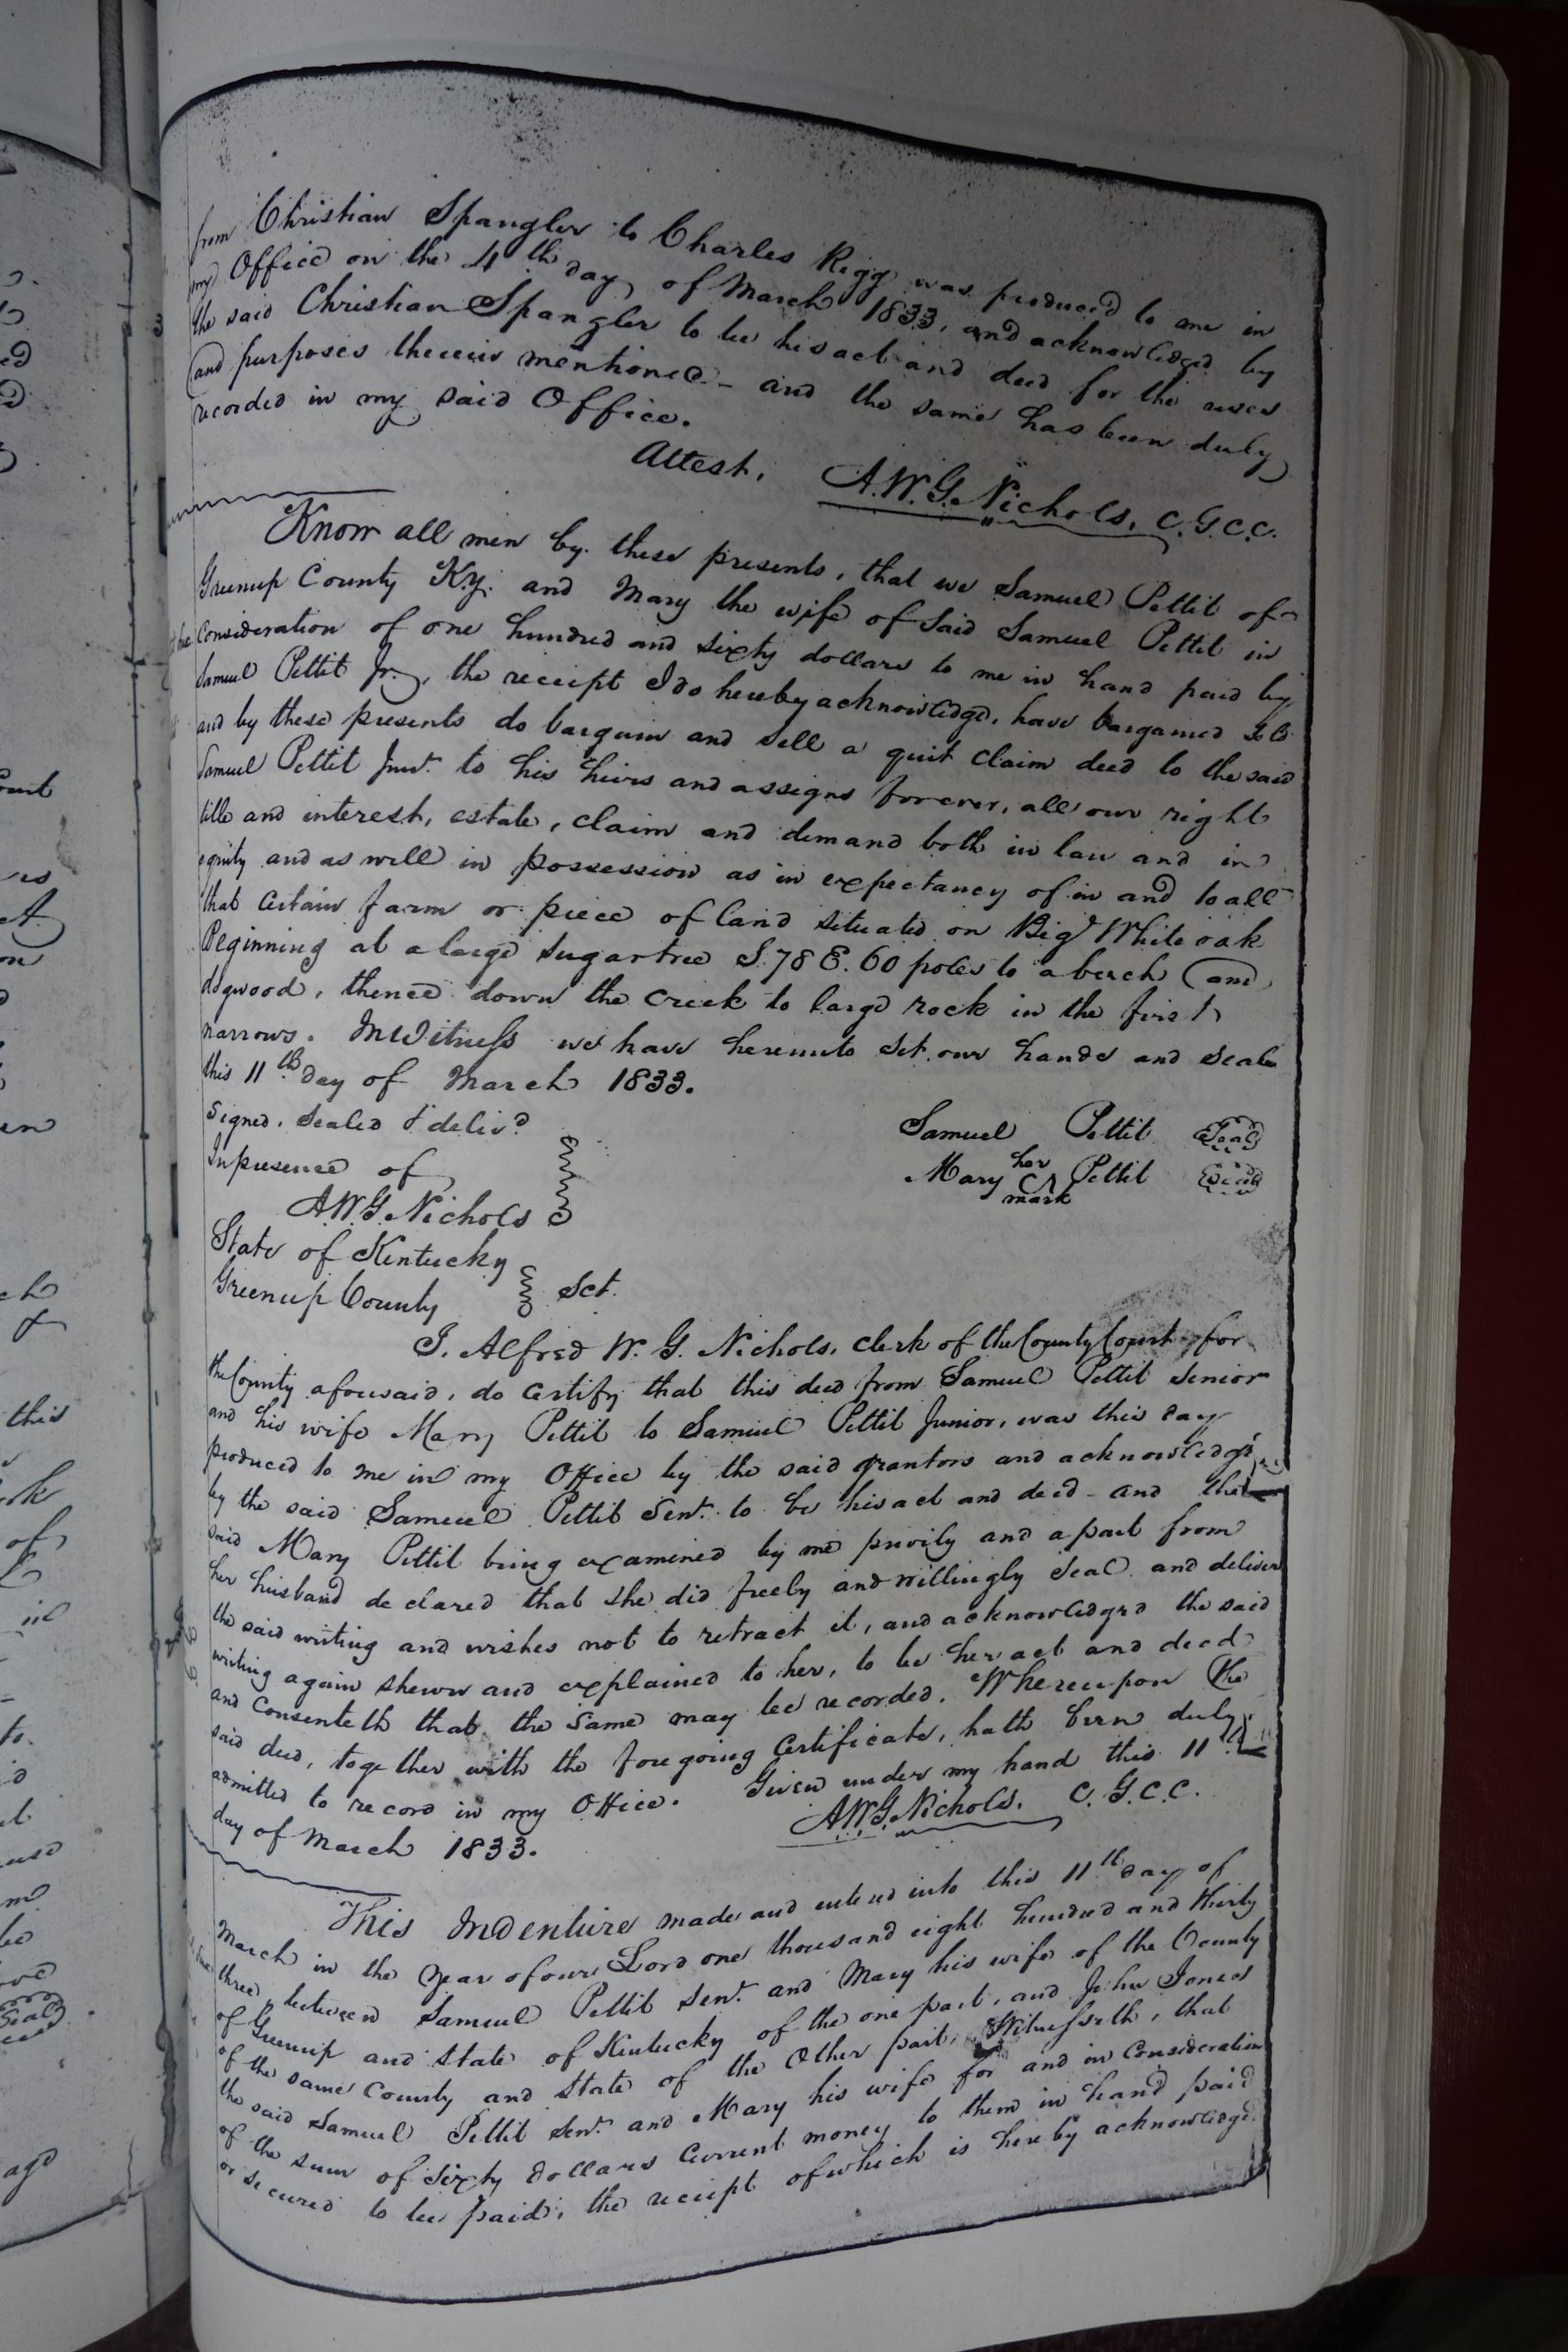 from Christian Spangler to Charles Rigg was produced to me in
my Office on the 4th day of March 1833, and acknowledged by
the said Christian Spangler to be his act and deed for the uses
and purposes therein mentioned - and the same has been duly
recorded in my said Office.
Attest, A.W.G. Nichols, C.G.C.C.
Know all men by these presents, that we Samuel Pettit of
Greenup County Ky. and Mary the wife of Said Samuel Pettit in
the Consideration of one hundred and sixty dollars to me in hand paid by
Samuel Pettit Jr., the receipt I do hereby acknowledge, have bargained Sold
and by these presents do bargain and sell a quit Claim deed to the said
Samuel Pettit Junr. to his heirs and assigns forever, all our right
title and interest, estate, claim and demand both in law and in
equity and as well in possession as in expectancy of in and to all
that Certain farm or piece of land situated on Big White oak
Beginning at a large Sugartree S.78 E. 60 poles to a beach and
dogwood, thence down the Creek to large rock in the first
narrows. In Witness we have hereunto set our hands and seals
this 11th day of March 1833.
Signed, Sealed & delivd
In presence of
A.W.G. Nichols
Samuel Pettit Seal
Mary her mark Pettit Seal
State of Kentucky
Greenup County Sct.
I. Alfred W. G. Nichols, Clerk of the County Court for
the County aforesaid, do Certify that this deed from Samuel Pettit Senior
and his wife Mary Pettit to Samuel Pettit Junior, was this day
produced to me in my Office by the said grantors and acknowledged
by the said Samuel Pettit Senr. to be his act and deed - and the
said Mary Pettit being examined by me privily and apart from
her husband declared that she did freely and willingly Seal and deliver
the said writing and wishes not to retract it, and acknowledged the said
writing again shewn and explained to her, to be her act and deed
and Consenteth that the Same may be recorded. Whereupon the
said deed, together with the foregoing Certificate, hath been duly
admitted to record in my Office. Given under my hand this 11th
day of March 1833. A.W.G. Nichols. C.G.C.C.
This Indenture made and entered into this 11th day of
March in the Year of our Lord one thousand eight hundred and thirty
three, between Samuel Pettit Senr. and Mary his wife of the County
of Greenup and State of Kentucky of the one part, and John Jones
of the same County and State of the Other part, Witnesseth, that
the said Samuel Pettit Senr. and Mary his wife for and in Consideration
of the sum of Sixty Dollars Current money to them in hand paid
or secured to be paid, the receipt of which is hereby acknowledged